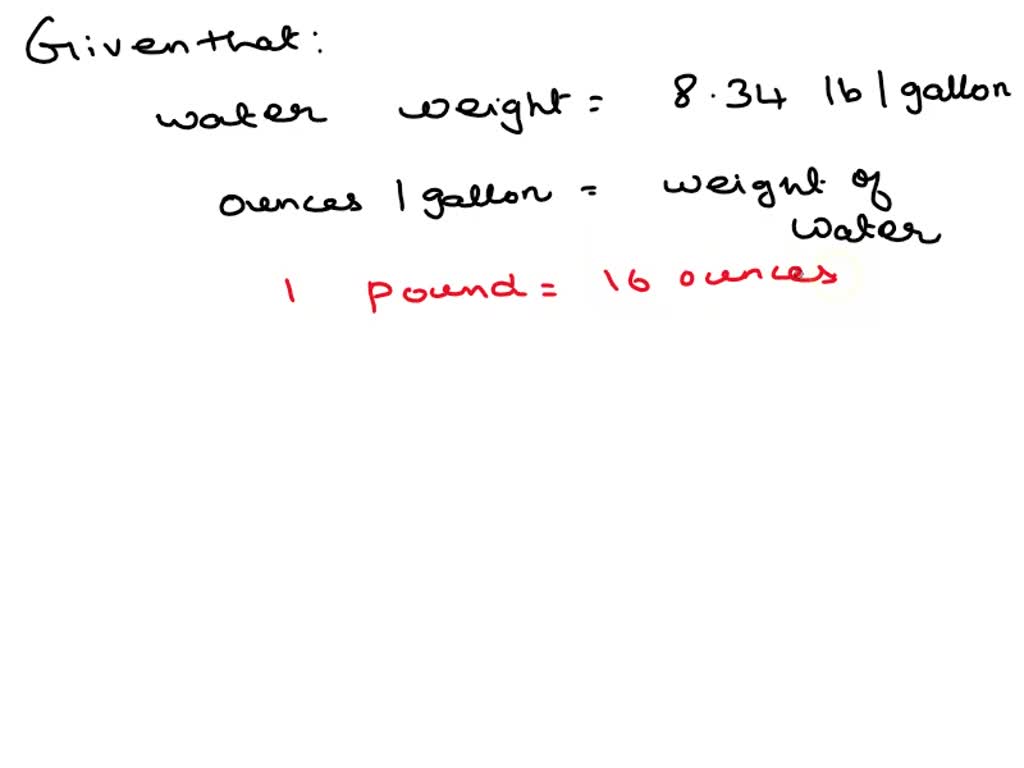 Given that:
water weight = 8.34 lb/gallon
ounces / gallon = weight of
water
1 pound = 16 ounces